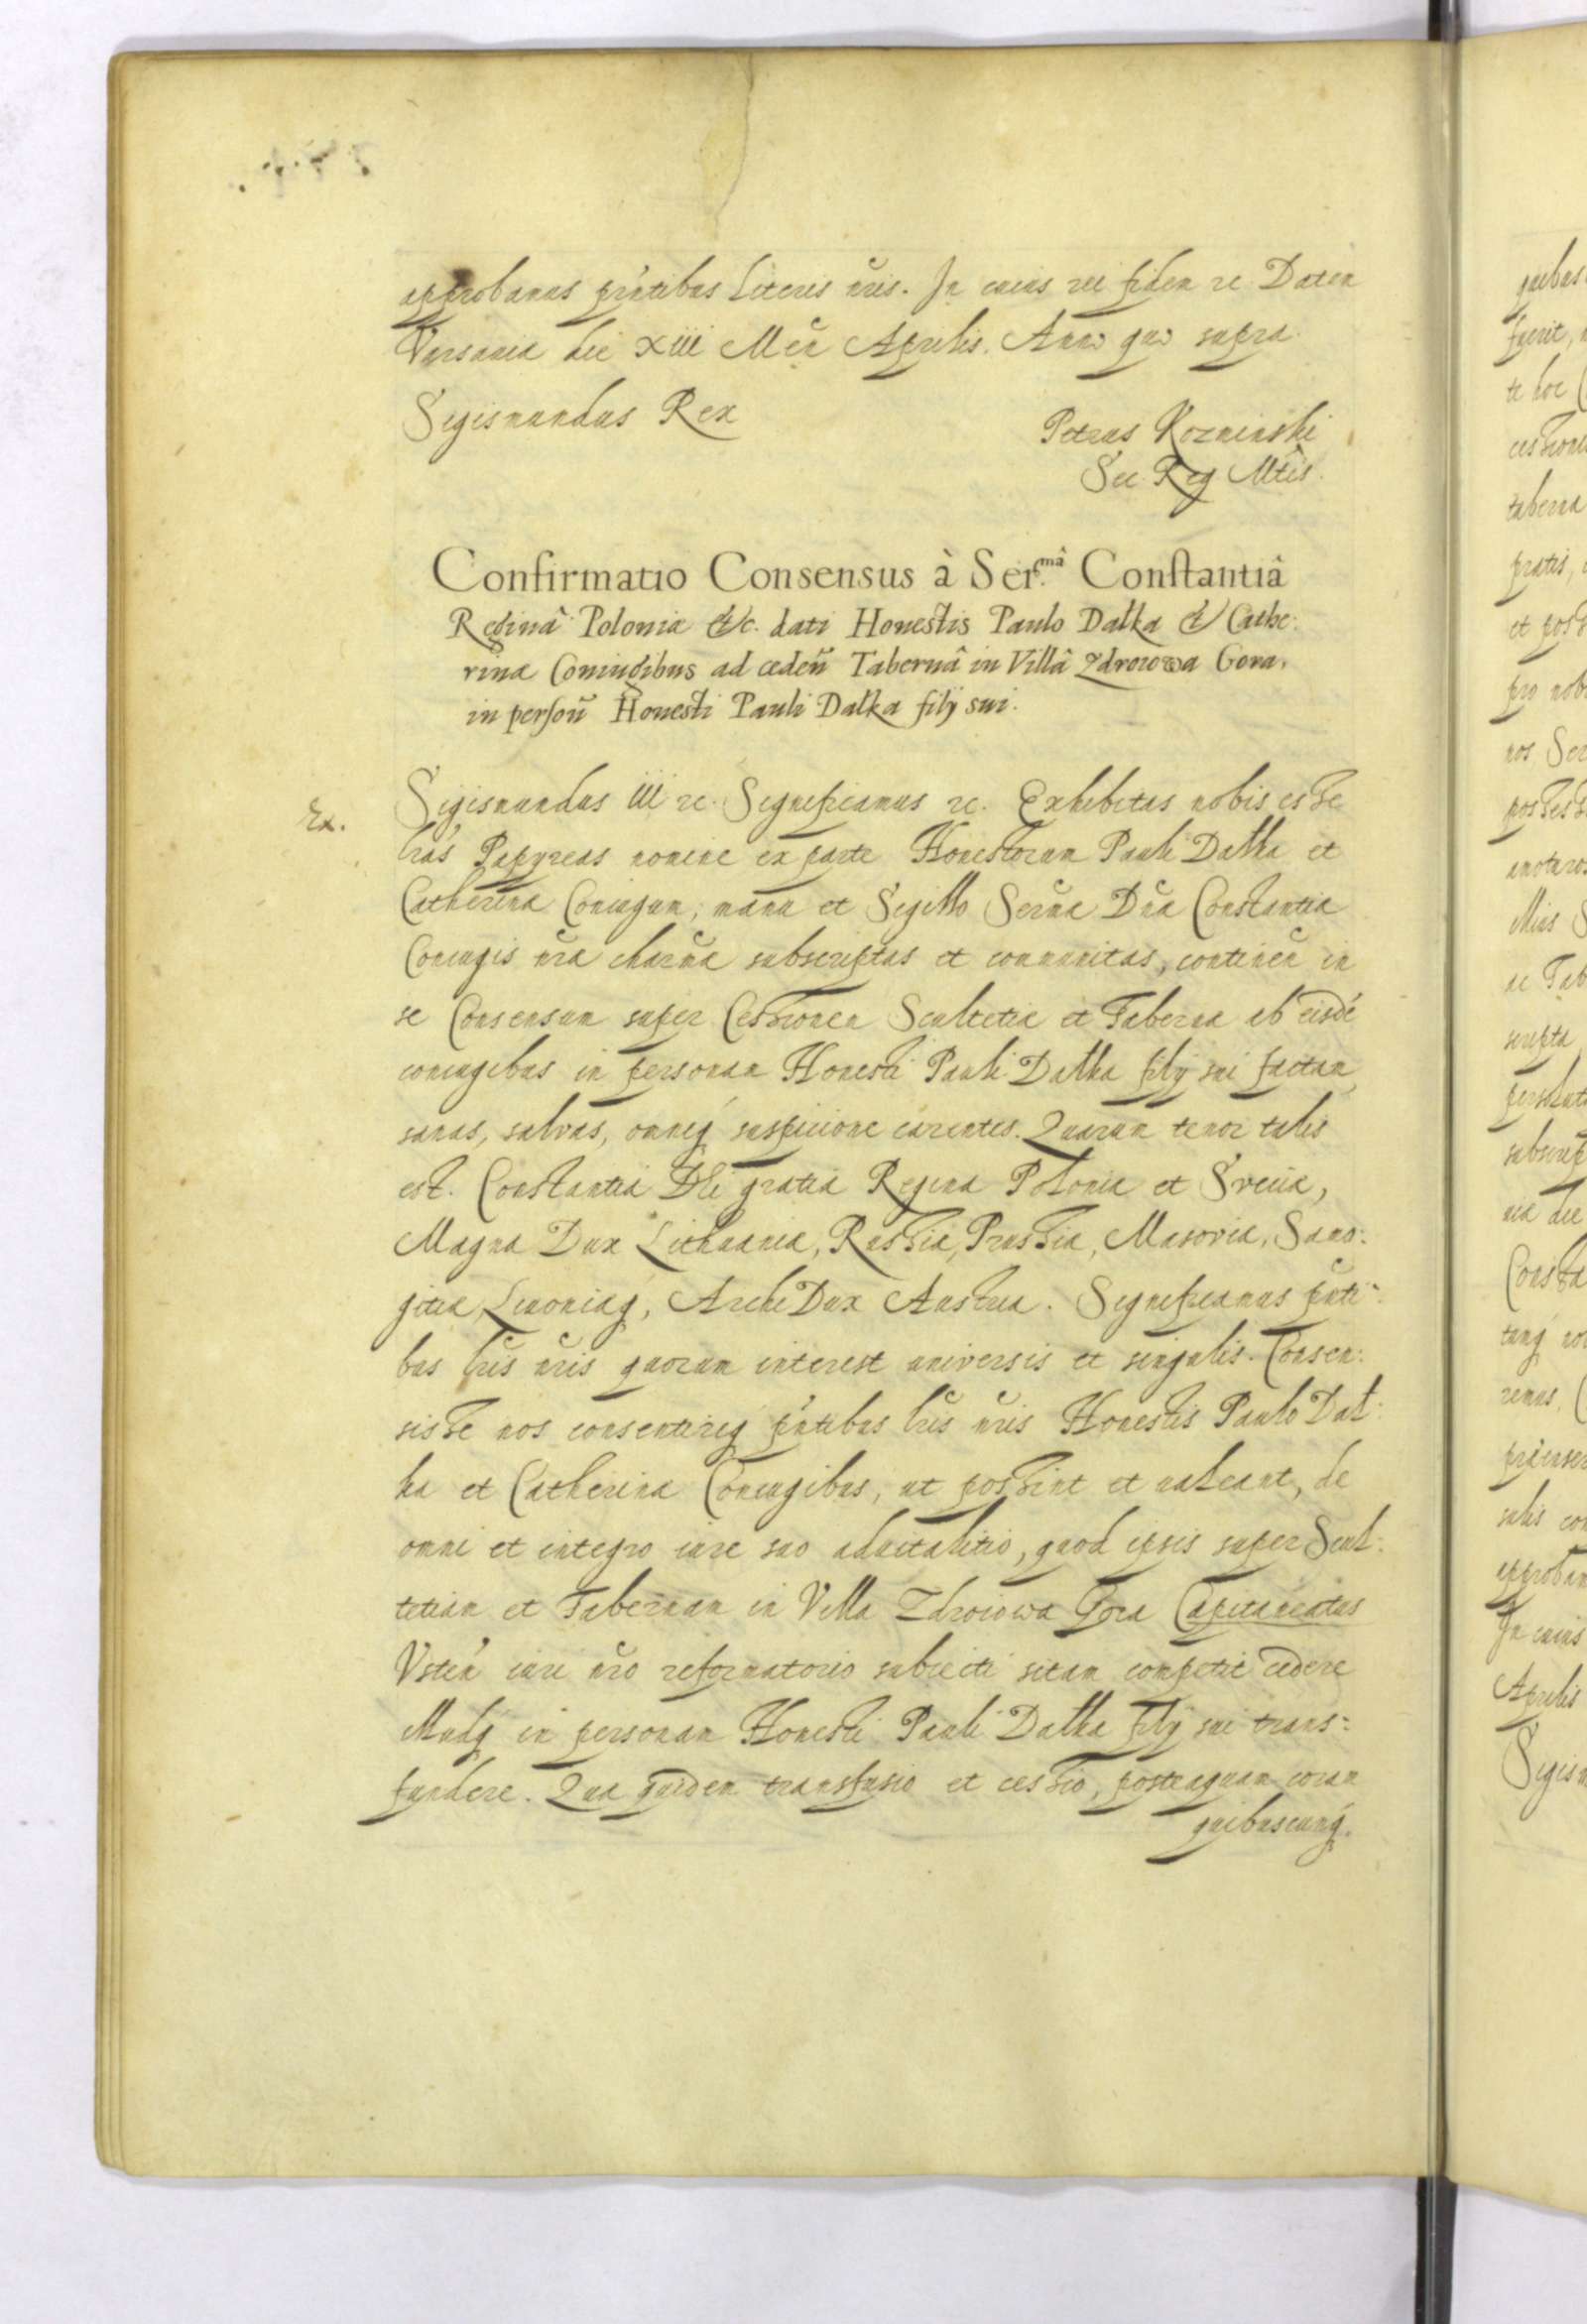 approbamus pr̃ntibus Literis nr̃is. In cuius rei fidem rc Datem
Varsauia die XIII Men̄ Aprilis. Anno quo supra.
Sigismundus Rex
Petrus Kozminski
Sec Reg Mtis.
Confirmatio Consensus à Ser.mâ Constantiâ
Reginâ Polonia &c. dati Honestis Paulo Dalka & Cathe:
rina Coniugibus ad cedeñ Tabernâ in Villâ Zdroiowa Gora,
in persoñ Honesti Pauli Dalka filij sui.
Ex.
Sigismundus III rc. Significamus rc. Exhibitas nobis esse
lrãs Papyreas nomine ex parte Honestorum Pauli Dalka et
Catherina Coniugum, manu et Sigillo Serm̃a Dñа Constantia
Coniugis nrã charm̃a subscriptas et communitas, continen̄ in
se Consensum super Cessionem Scultetia et Taberna ab eisdē
coniugibus in personam Honesti Pauli Dalka filij sui factam,
sanas, salvas, omniq́ suspicione carentes. Quarum tenor talis
est. Constantia Dei gratia Regina Polonia et Svecia,
Magna Dux Lithuania, Russia, Prussia, Masovia, Samo:
gitia Liuoniaq́, ArchiDux Austria. Significamus pñti:
bus lrĩs nrĩs quorum interest universis et singulis. Consen:
sisse nos consentireq́ pñtibus lrĩs nrĩs Honestis Paulo Dal:
ka et Catherina Coniugibus, ut possint et ualeant, de
omni et integro iure suo aduitalitio, quod ipsis super Scul:
tetiam et Tabernam in Villa Zdroiowa Gora Capitaneatus
Vsteñ iuri nrõ reformatorio subiecti sitam competit cedere
Illudq́ in personam Honesti Pauli Dalka filij sui trans:
fundere. Qua quidem transfusio et cessio, posteaquam coram
quibuscunq́.